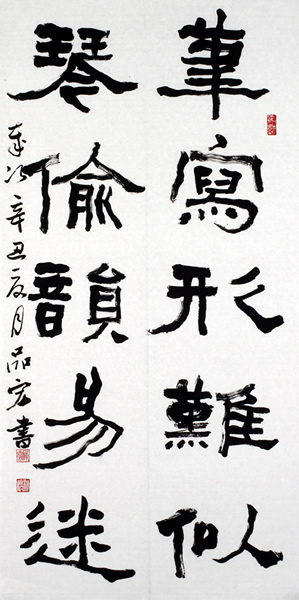 筆寫形難似
琴偷韻易迷
歲次辛丑夏月品宏書